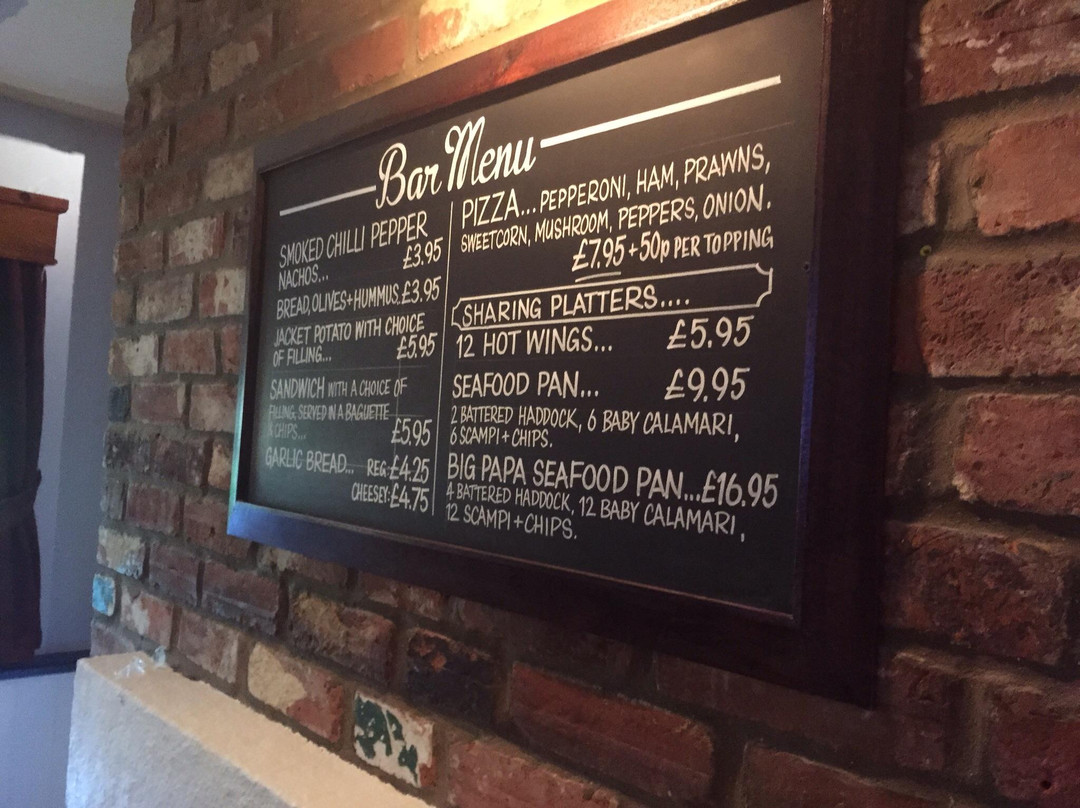 Bar Menu
SMOKED CHILLI PEPPER
NACHOS... £3.95
BREAD, OLIVES+HUMMUS. £3.95
JACKET POTATO WITH CHOICE
OF FILLING... £5.95
SANDWICH WITH A CHOICE OF
FILLING, SERVED IN A BAGUETTE
& CHIPS... £5.95
GARLIC BREAD... REG: £4.25
CHEESEY: £4.75
PIZZA... PEPPERONI, HAM, PRAWNS,
SWEETCORN, MUSHROOM, PEPPERS, ONION.
£7.95 +50p PER TOPPING
SHARING PLATTERS....
12 HOT WINGS... £5.95
SEAFOOD PAN... £9.95
2 BATTERED HADDOCK, 6 BABY CALAMARI,
6 SCAMPI + CHIPS.
BIG PAPA SEAFOOD PAN...£16.95
4 BATTERED HADDOCK, 12 BABY CALAMARI,
12 SCAMPI + CHIPS.